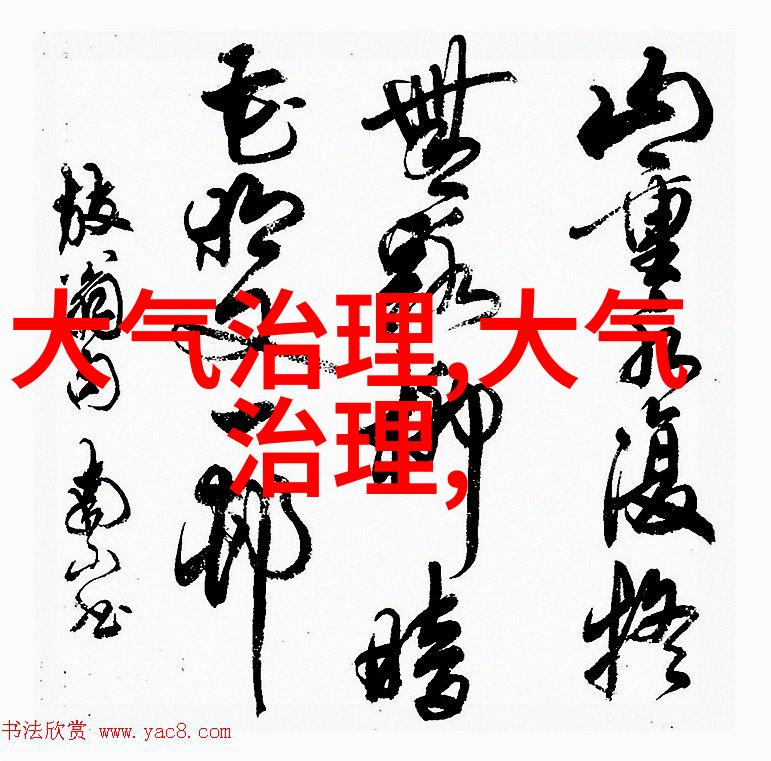 大气治理,大气
治理,
山重水復擬
無路柳暗
花明又一邨
放翁句
书法欣赏 www.yac8.com